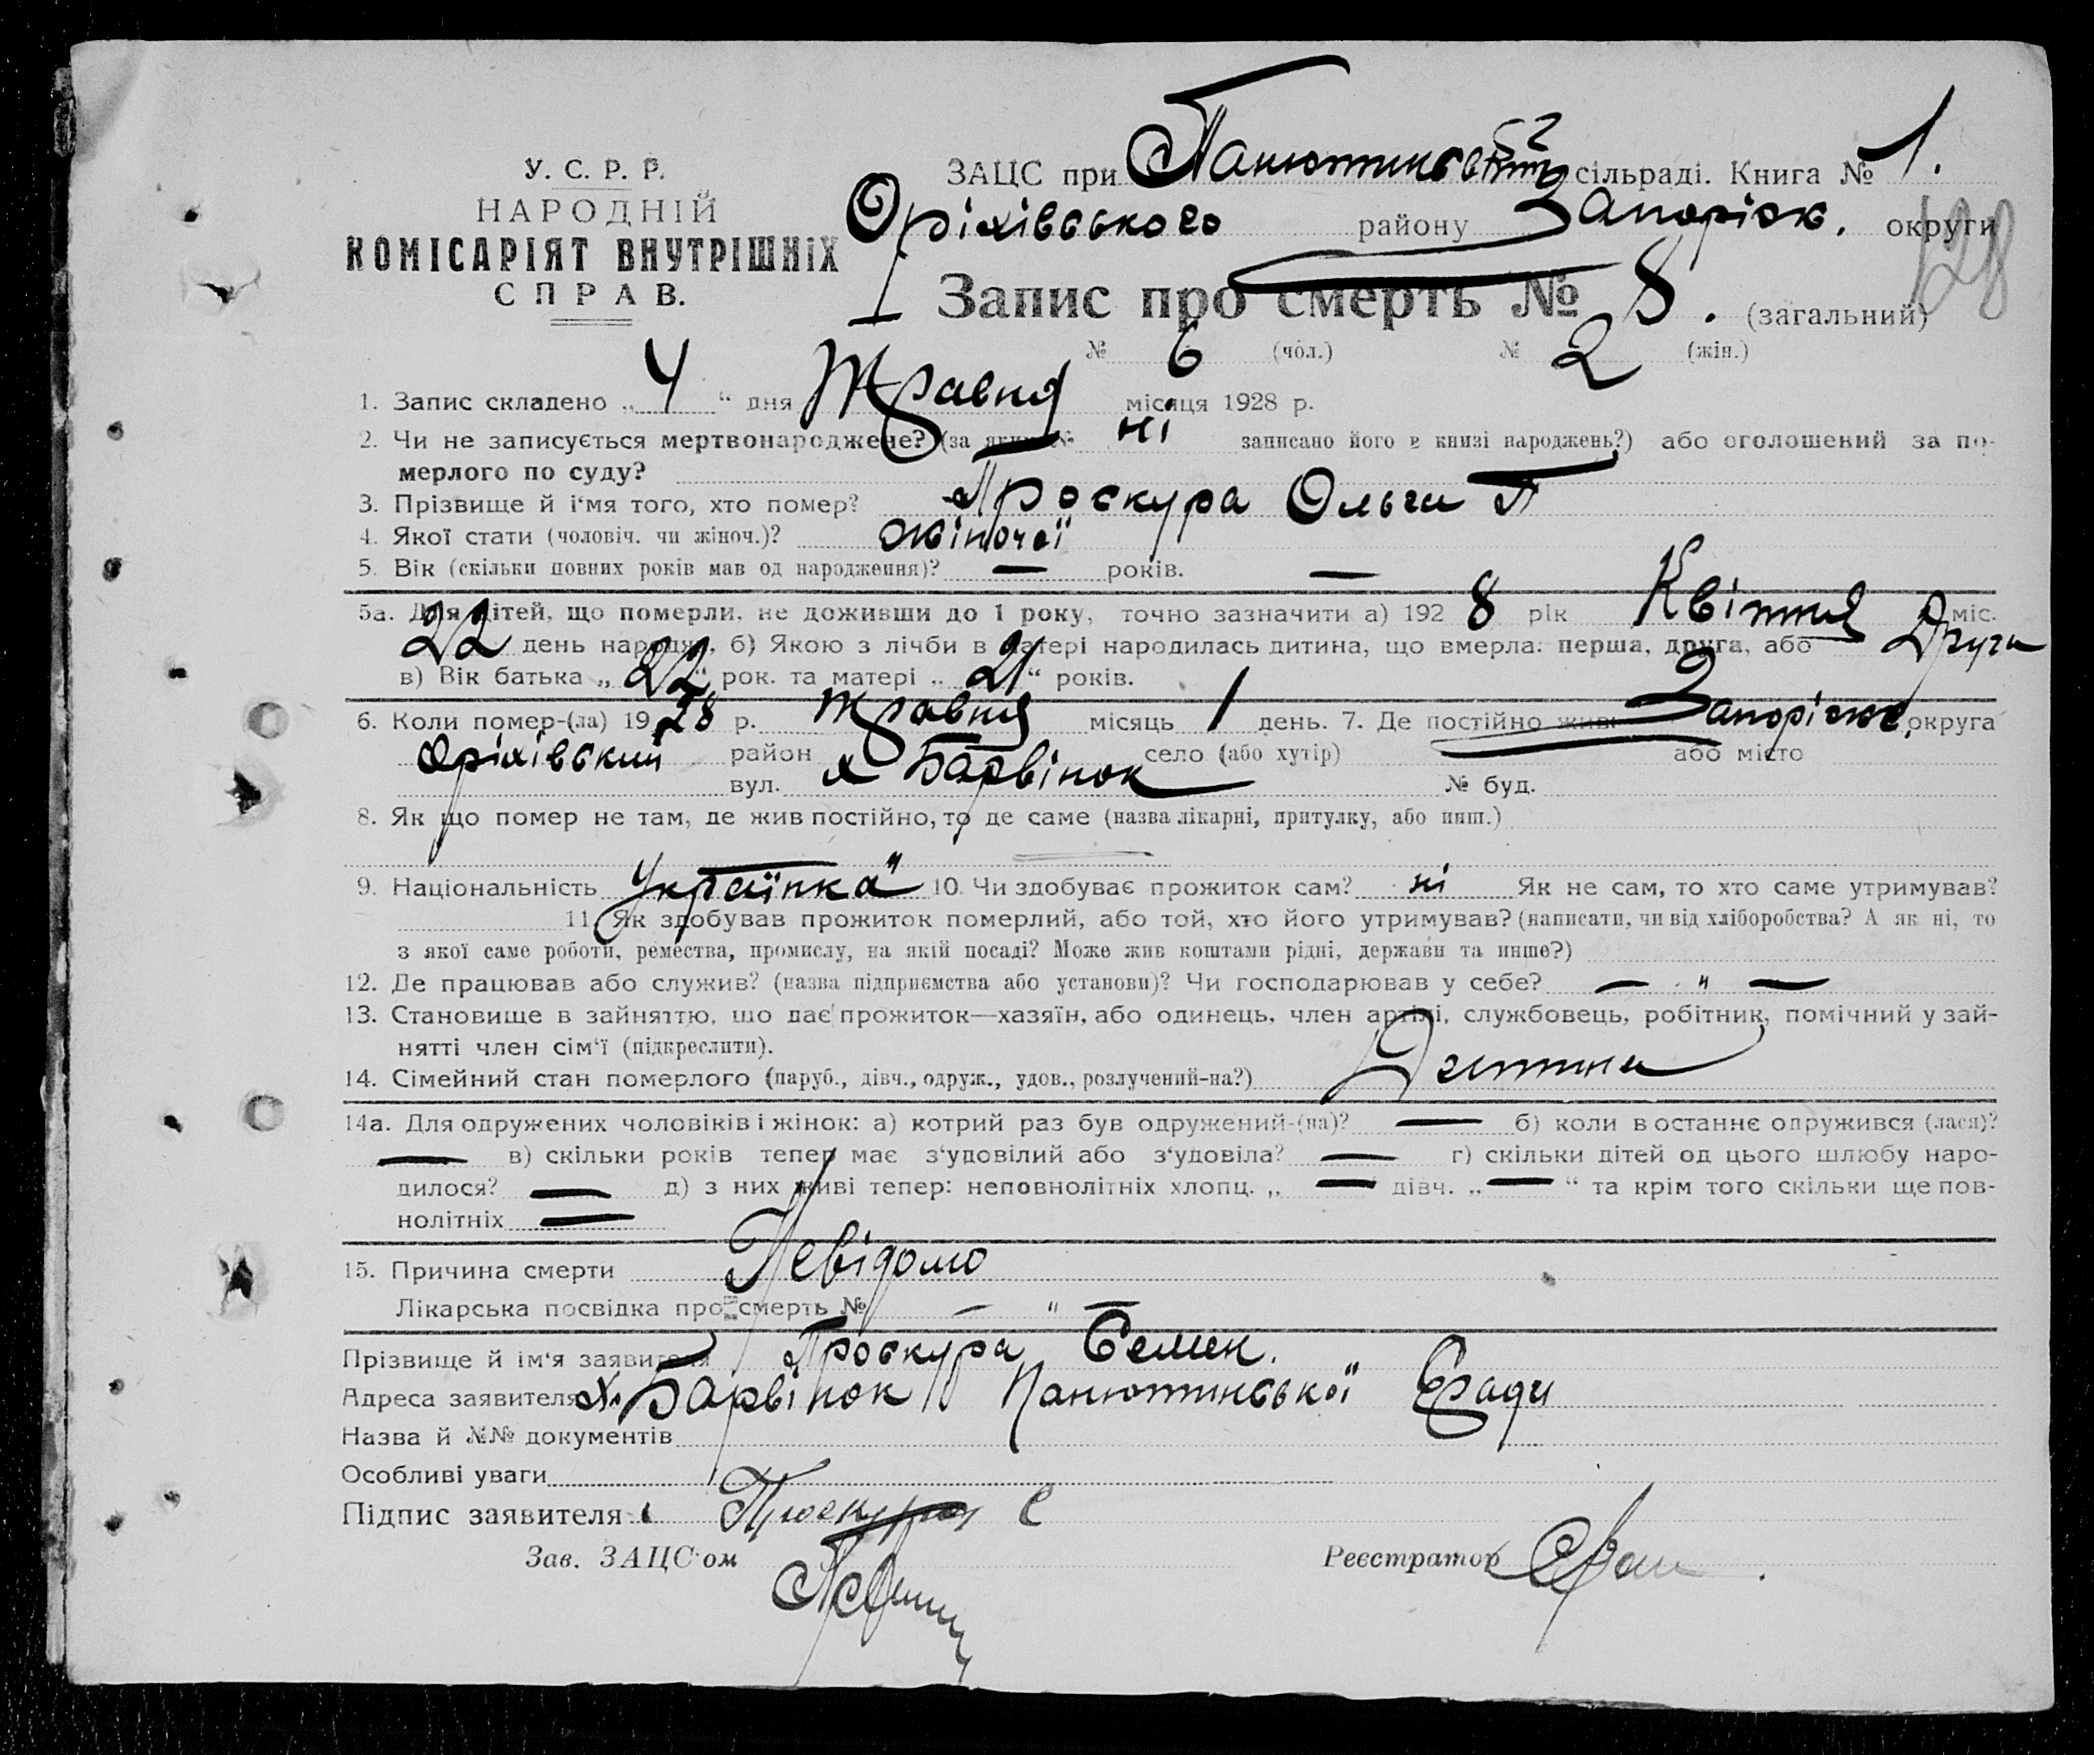 У. С. Р. Р.
НАРОДНІЙ
КОМІСАРІЯТ ВНУТРІШНІХ
СПРАВ.
ЗАЦС при сільраді. Книга № 1.
Оріхівського району Запоріжк. округи
128
Запис про смерть № 8. (загальний)
№ 6 (чол.) № 2 (жін.)
1. Запис складено „ 4 “ дня Травня місяця 1928 р.
2. Чи не записується мертвонароджене? (за яким № ні записано його в книзі народжень?) або оголошений за по-
мерлого по суду?
3. Прізвище й і‘мя того, хто помер? Проскура Ольга П
4. Якої стати (чоловіч. чи жіноч.)? жіночої
5. Вік (скільки повних років мав од народження)? — років. —
5а. Для дітей, що померли, не доживши до 1 року, точно зазначити а) 192 8 рік Квітня міс.
22 день народж., б) Якою з лічби в матері народилась дитина, що вмерла: перша, друга, або Друга
в) Вік батька „ 22 “ рок. та матері „ 21 “ років.
6. Коли помер-(ла) 19 28 р. травня місяць 1 день. 7. Де постійно жив Запоріжк. округа
Оріхівский район село (або хутір) або місто
вул. х Барвінок № буд.
8. Як що помер не там, де жив постійно, то де саме (назва лікарні, притулку, або инш.)
9. Національність Українка 10. Чи здобуває прожиток сам? ні Як не сам, то хто саме утримував?
11. Як здобував прожиток померлий, або той, хто його утримував? (написати, чи від хліборобства? А як ні, то
з якої саме роботи, ремества, промислу, на якій посаді? Може жив коштами рідні, держави та инше?)
12. Де працював або служив? (назва підприємства або установи)? Чи господарював у себе? — „ —
13. Становище в зайняттю, що дає прожиток—хазяїн, або одинець, член артілі, службовець, робітник, помічний у зай-
нятті член сім‘ї (підкреслити).
14. Сімейний стан померлого (паруб., дівч., одруж., удов., розлучений-на?) Дитина
14а. Для одружених чоловіків і жінок: а) котрий раз був одружений-(на)? — б) коли в останнє одружився (лася)?
— в) скільки років тепер має з‘удовілий або з‘удовіла? — г) скільки дітей од цього шлюбу наро-
дилося? — д) з них живі тепер: неповнолітніх хлопц. „ — дівч. „ — “ та крім того скільки ще пов-
нолітніх —
15. Причина смерти Невідомо
Лікарська посвідка про смерть № — „ —
Прізвище й ім‘я заявителя Проскура Семен.
Адреса заявителя х. Барвінок Панютинської С/ради
Назва й №№ документів
Особливі уваги
Підпис заявителя Проскура С
Зав. ЗАЦС‘ом
Реєстратор